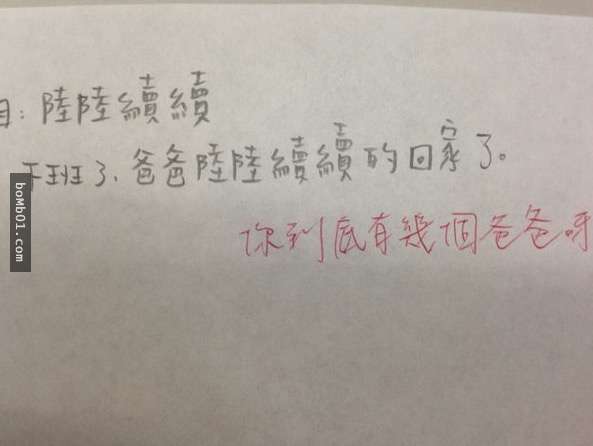 目：陸陸續續
下班了，爸爸陸陸續續的回家了。
你到底有幾個爸爸呀
boMb01.com